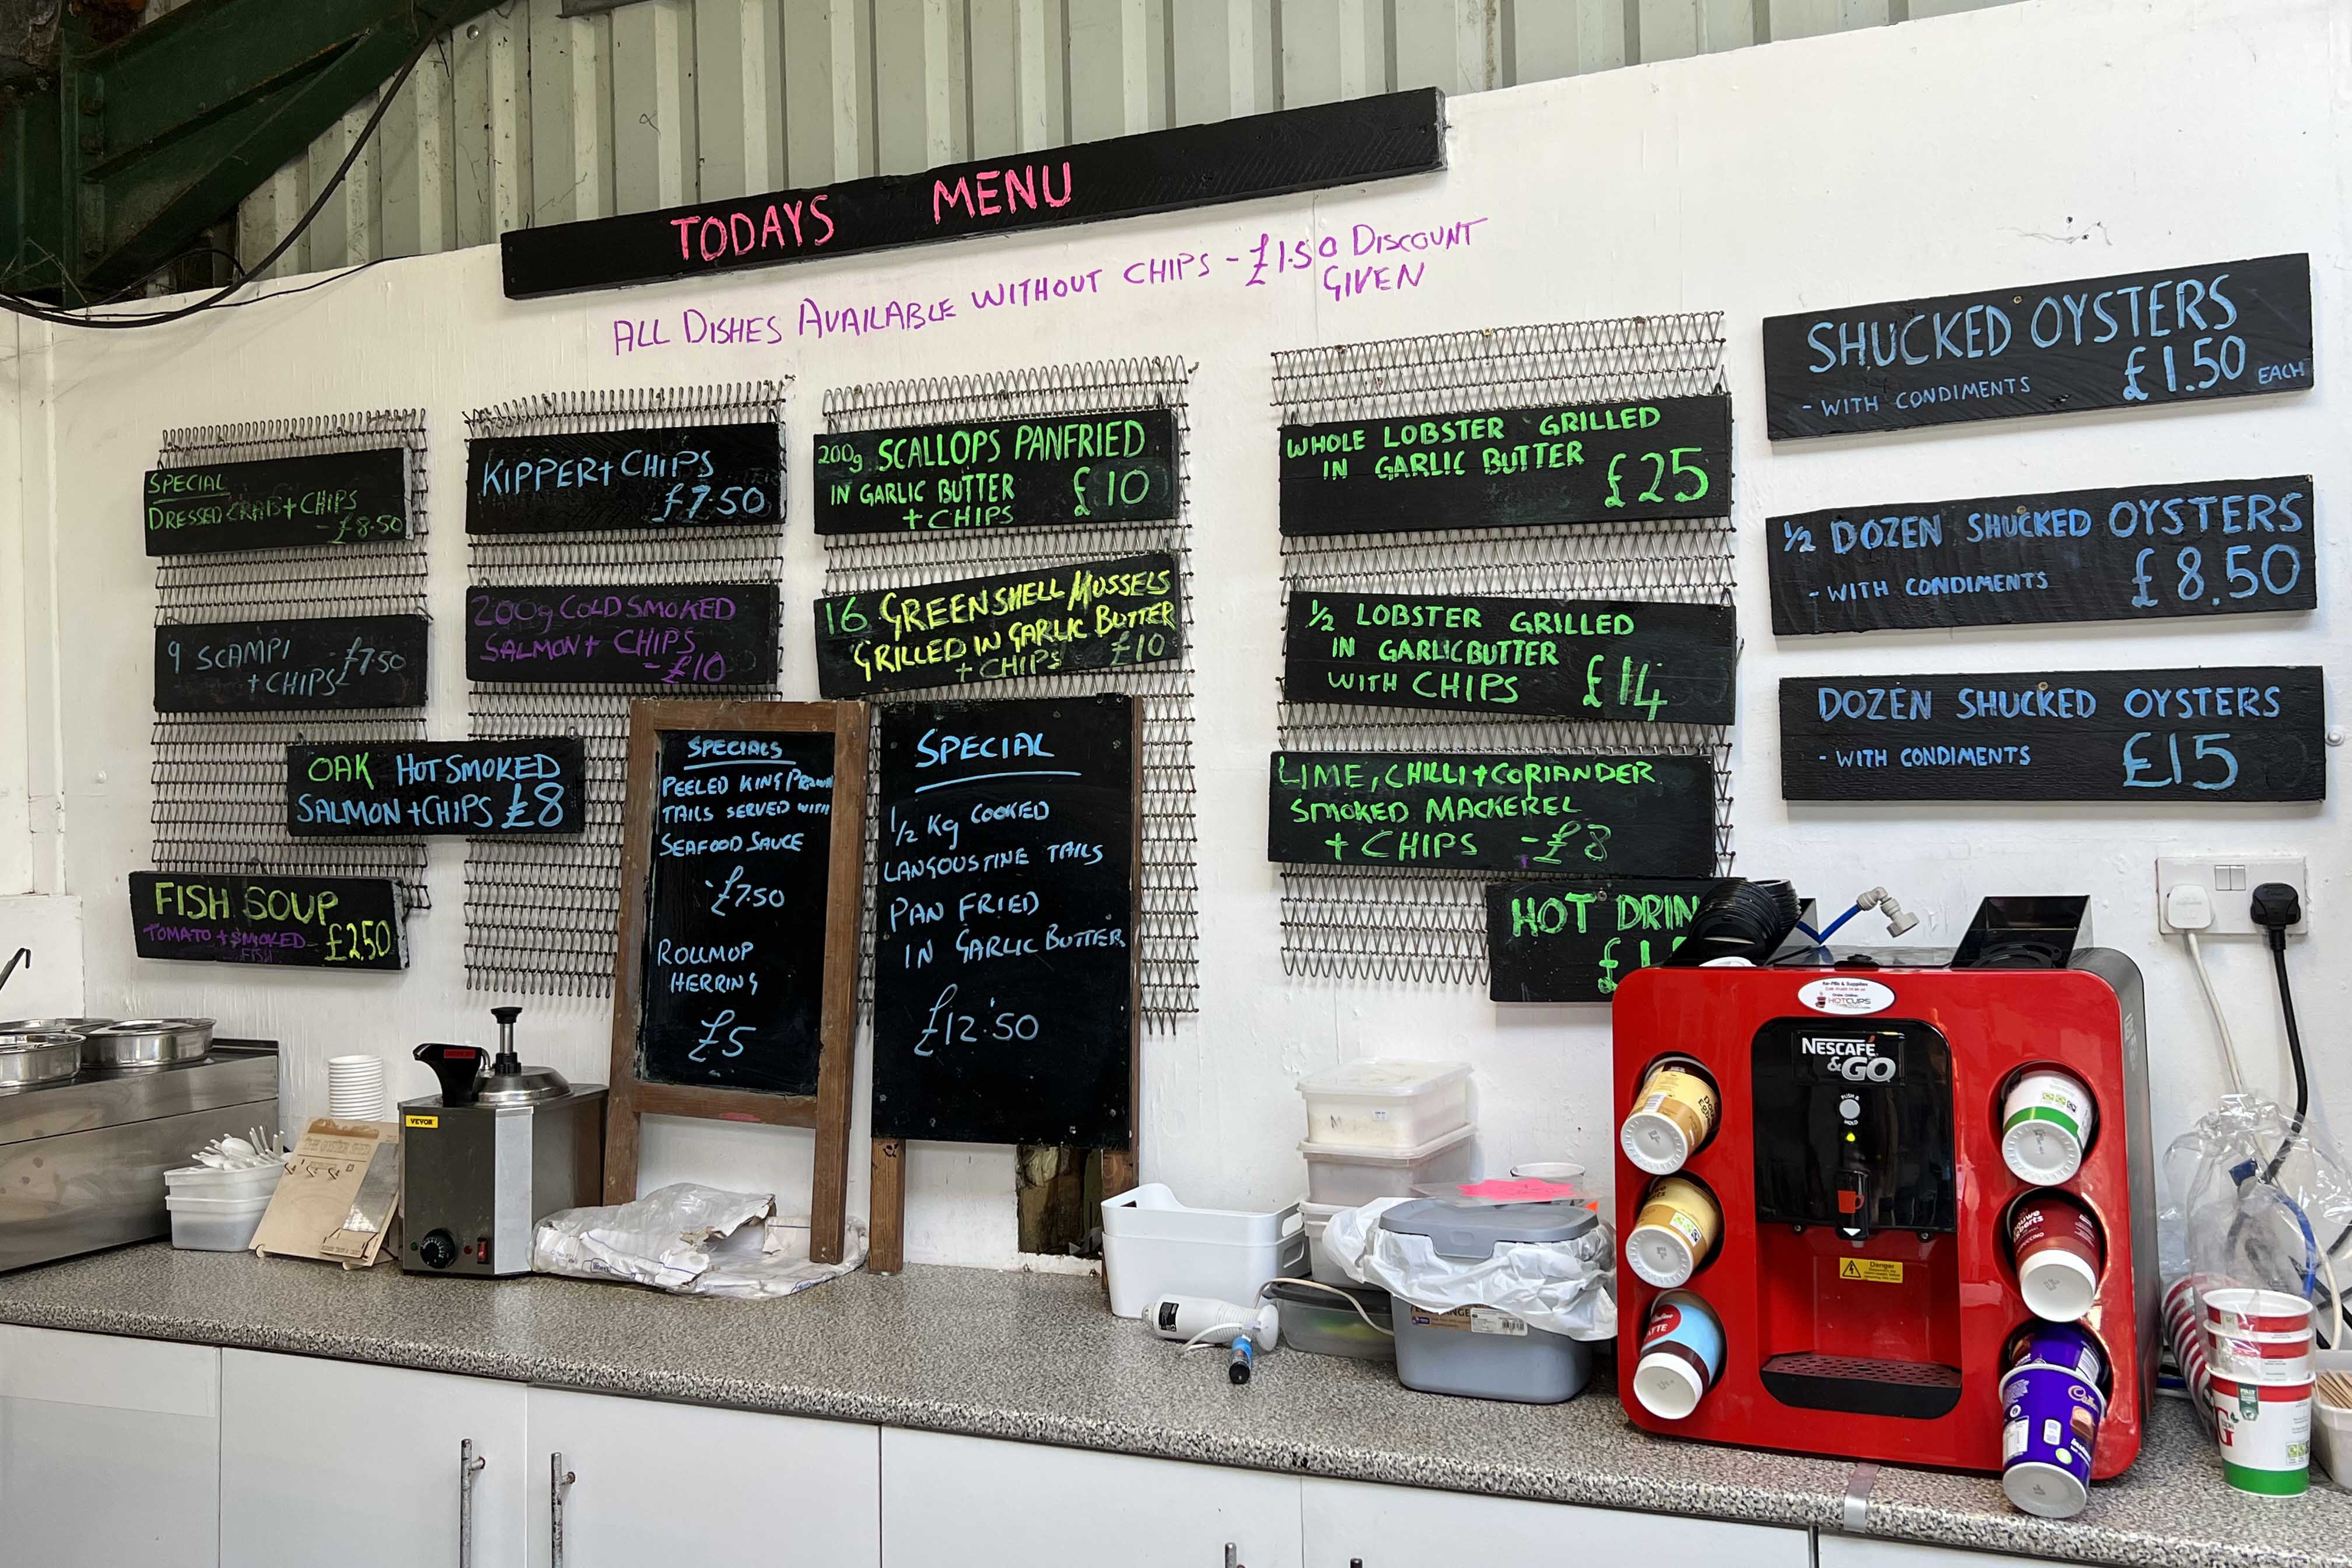 TODAYS MENU
ALL DISHES AVAILABLE WITHOUT CHIPS - £1.50 DISCOUNT
GIVEN
SPECIAL
DRESSED CRAB + CHIPS
- £8.50
9 SCAMPI
+ CHIPS £7.50
OAK HOT SMOKED
SALMON + CHIPS £8
FISH SOUP
TOMATO + SMOKED
FISH
£2.50
KIPPER + CHIPS
£7.50
200g COLD SMOKED
SALMON + CHIPS
- £10
200g SCALLOPS PANFRIED
IN GARLIC BUTTER £10
+ CHIPS
16 GREENSHELL MUSSELS
GRILLED IN GARLIC BUTTER
+ CHIPS £10
SPECIALS
PEELED KING PRAWN
TAILS SERVED WITH
SEAFOOD SAUCE
- £7.50
ROLLMOP
HERRING
£5
SPECIAL
1/2 Kg COOKED
LANGOUSTINE TAILS
PAN FRIED
IN GARLIC BUTTER
£12.50
WHOLE LOBSTER GRILLED
IN GARLIC BUTTER £25
1/2 LOBSTER GRILLED
IN GARLIC BUTTER
WITH CHIPS £14
LIME, CHILLI + CORIANDER
SMOKED MACKEREL
+ CHIPS - £8
HOT DRIN
SHUCKED OYSTERS
- WITH CONDIMENTS £1.50 EACH
1/2 DOZEN SHUCKED OYSTERS
- WITH CONDIMENTS £8.50
DOZEN SHUCKED OYSTERS
- WITH CONDIMENTS £15
VEVOR
HOTCUPS
NESCAFÉ
&GO
PUSH &
HOLD
Danger